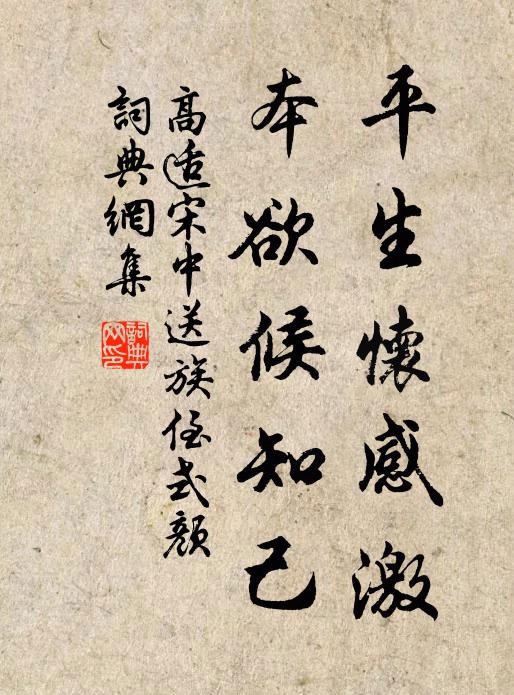 平生懷感激
本欲候知己
高适宋中送族侄式顏
詞典網集
詞典网印